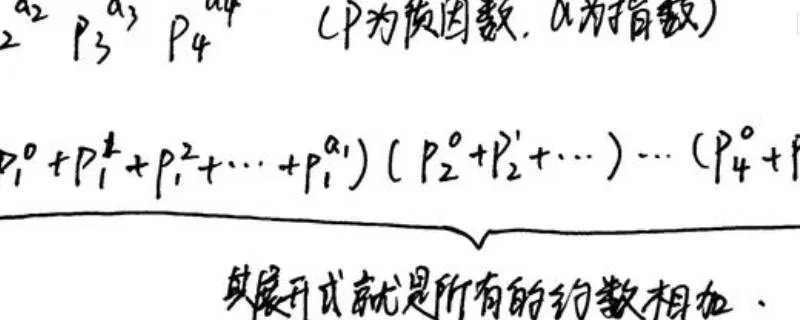 ₂^a₂ p₃^a₃ p₄^a₄ (p为质因数. a为指数)
p₁⁰+p₁¹+p₁²+…+p₁^a₁)(p₂⁰+p₂¹+…)…(p₄⁰+p
其展开式就是所有的约数相加.